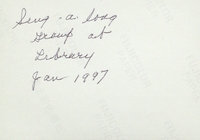 Sing-a Song
Group at
Library
Jan 1997